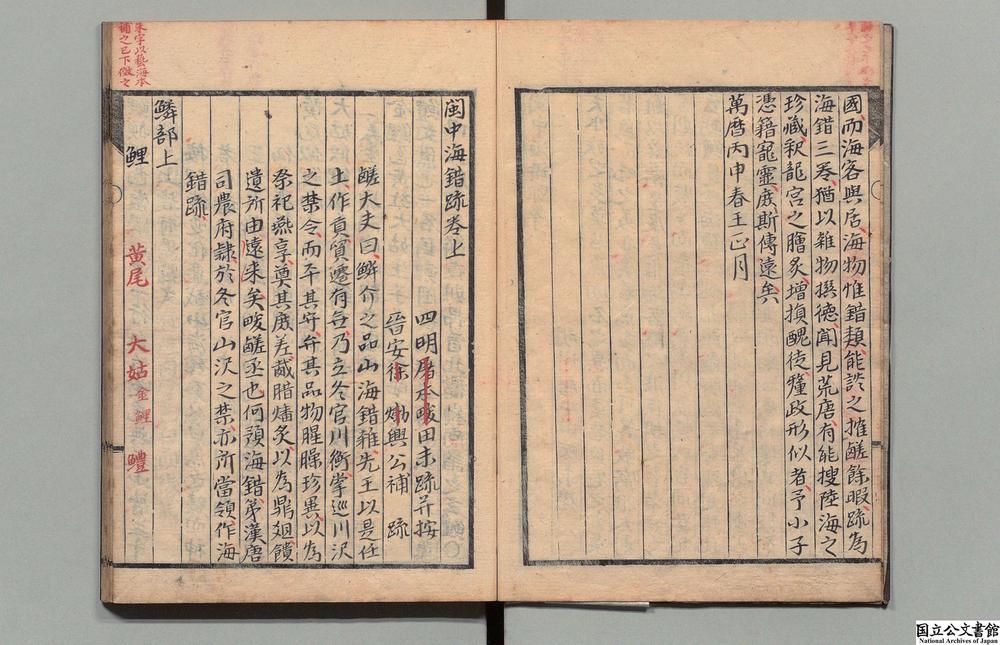 國而海客與居海物惟錯類能談之推鹺餘暇疏為
海錯三卷猶以雜物撰德聞見荒唐有能搜陸海之
珍藏釈龍宮之膾炙增損醜徒釐政形似者予小子
憑籍寵靈庶斯傳遠矣
萬曆丙申春王正月
朱字以藝海本
補之已下倣之
閩中海錯疏卷上
四明屠本畯田未疏并按
晉安徐𤊹興公補疏
鹺大夫曰鱗介之品山海錯雜先王以是任
土作貢貿遷有無乃立冬官川衡掌巡川沢
之禁令而平其守弁其品物腥臊珍異以為
祭祀燕享奠其庶羞胾腊燔炙以為鼎俎饋
遺所由遠来矣畯鹺丞也何預海錯第漢唐
司農府隷於冬官山沢之禁亦所當領作海
錯疏
鱗部上
鯉 黄尾 大姑 金鯉 鱧
国立公文書館
National Archives of Japan